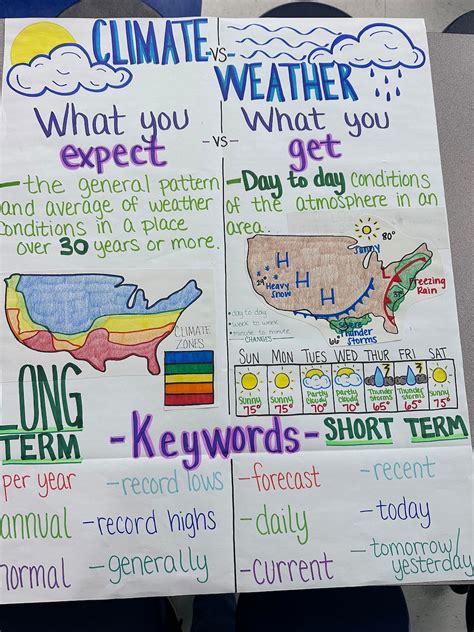 CLIMATE -VS- WEATHER
What you expect
-VS-
What you get
- the general pattern
and average of weather
conditions in a place
over 30 years or more.
- Day to day conditions
of the atmosphere in an
area.
CLIMATE
ZONES
Sunny 80°
H
H
H
H
Heavy
Snow
L
Freezing
Rain
33°
Severe
Thunder
Storms
66°
day to day
week to week
minute to minute
CHANGES
SUN MON TUES WED THUR FRI SAT
Sunny Sunny Partly Cloudy Partly Cloudy Thunder Storms Thunder Storms Sunny
75° 75° 70° 70° 65° 65° 75°
LONG
TERM
SHORT TERM
-Keywords-
per year
-record lows
annual
-record highs
normal
-generally
-forecast
-recent
-daily
-today
-current
-tomorrow/
yesterday